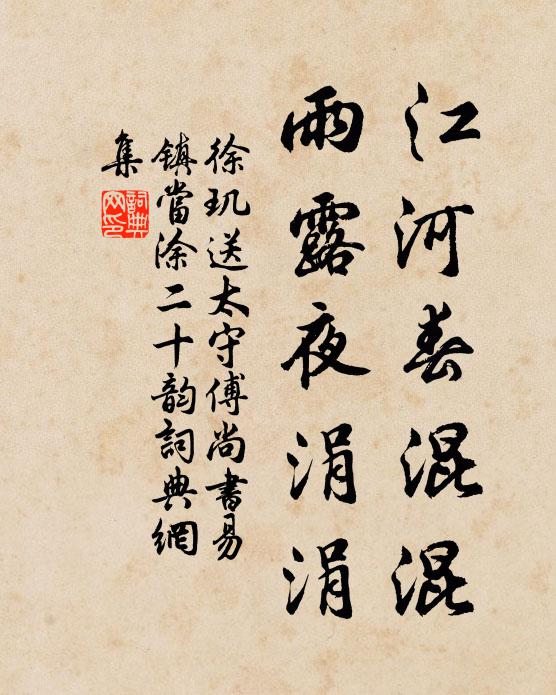 江河春混混
雨露夜涓涓
徐玑送太守傅尚書易
鎮當涂二十韵詞典網
集
詞典
网印